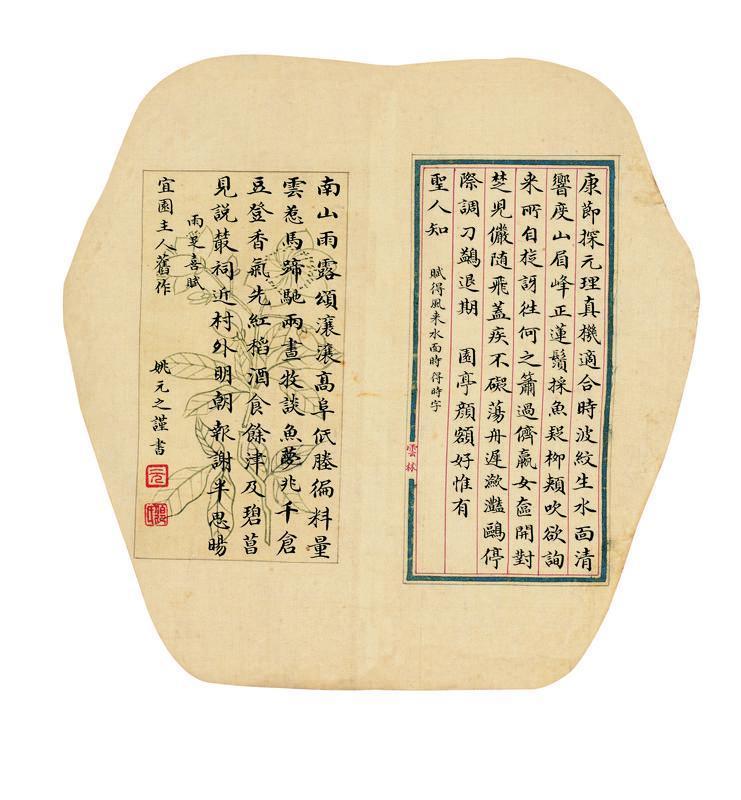 康節探元理真機適合時波紋生水面清
響度山眉峰正蓮鬚採魚疑柳頰吹欲詢
来所自旋訝徃何之簫過儕嬴女奩開對
楚児儼随飛蓋疾不礙蕩舟遲瀲灧鷗停
際調刀鷁退期 園亭顔額好惟有
聖人知 賦得風来水面時得時字
雲林
南山雨露頌瀼瀼高阜低塍徧料量
雲惹馬蹄馳兩晝牧談魚夢兆千倉
豆登香氣先紅稻酒食餘津及碧菖
見說叢祠近村外明朝報謝半思暘
雨喜賦
宜園主人舊作
姚元之謹書